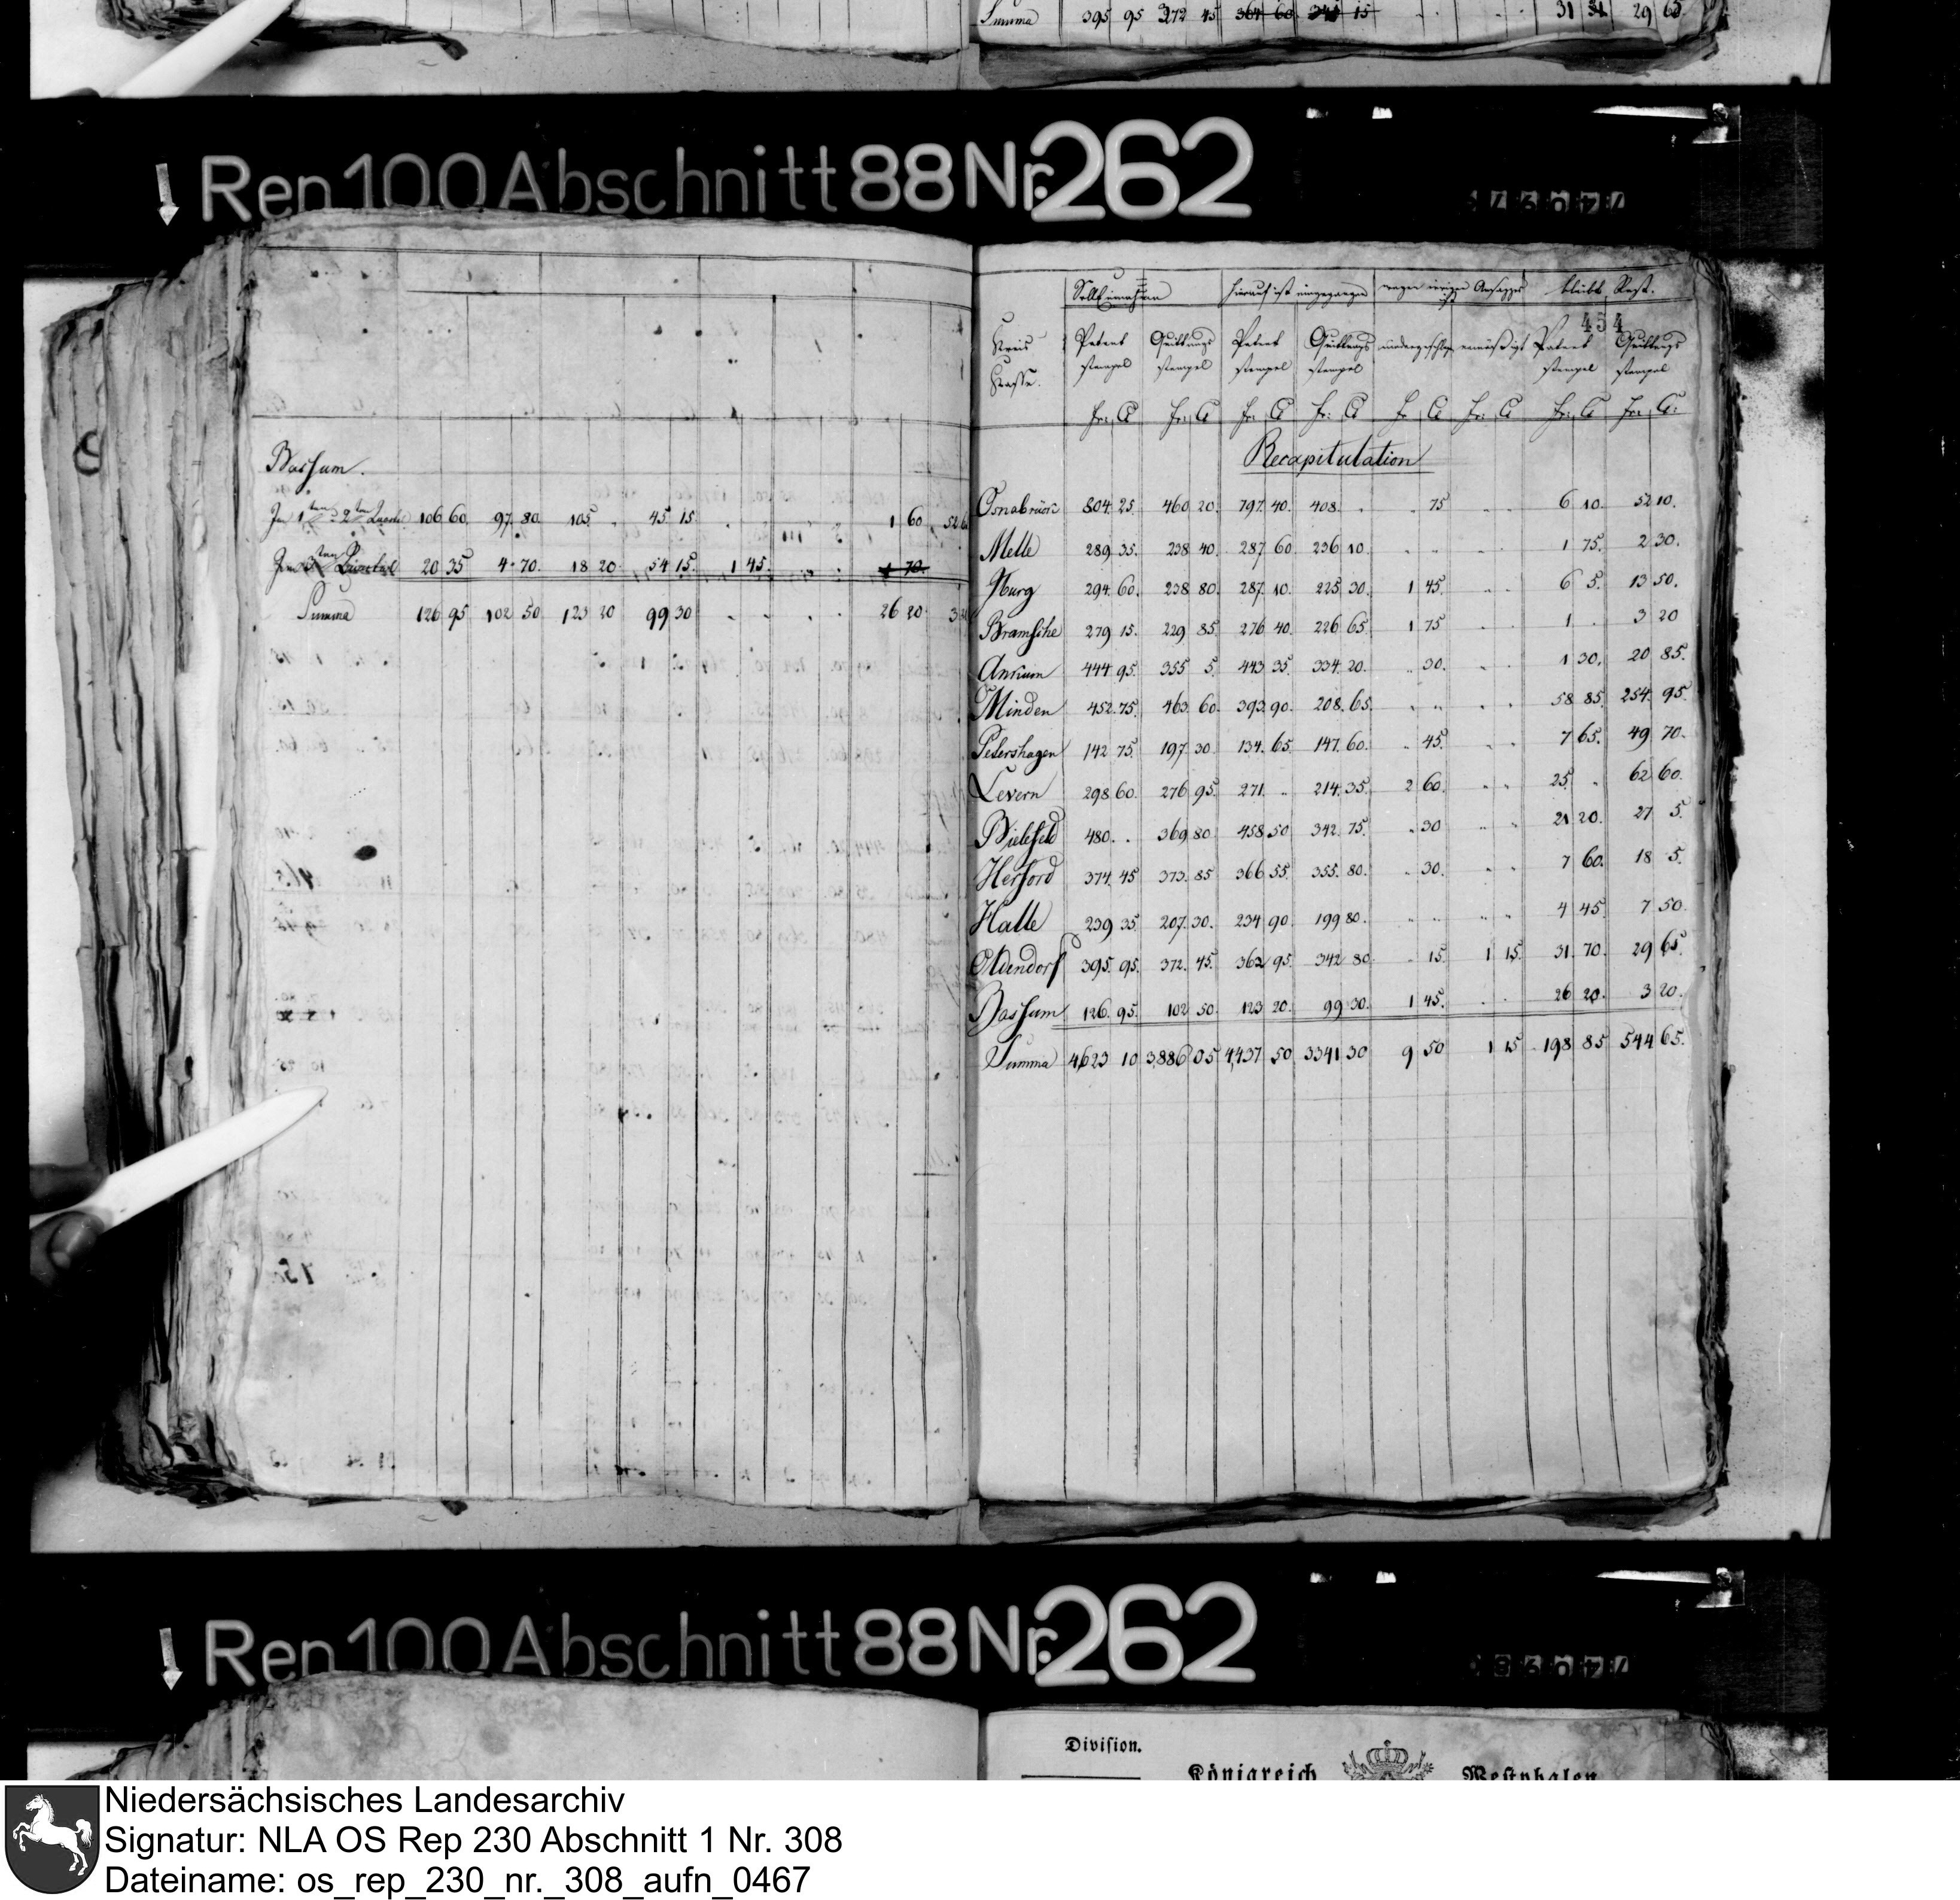 Summa 395 95 372 45 364 60 15 31 29 65
Rep 100 Abschnitt 88 Nr. 262
Bassum.
106 60. 97. 80. 105 " 45 15. 1 60
20 35 4 70. 18 20 54 15. 1 45. 1 70.
Summa 126 95 102 50 123 20 99 30 26 20
Soll Einnahme hierauf ist eingegangen bleibt Rest.
454
Kreis Casse. Patent stempel Quittungs stempel Patent stempel Quittungs stempel niedergeschlagen ermäßigt Patent stempel Quittungs stempel
Fr. C Fr. C Fr. C Fr. C Fr. C Fr. C Fr. C Fr. C
Recapitulation
Osnabrück 804. 25. 460 20. 797. 40. 408. " 75 6 10. 52 10.
Melle 289 35. 238 40. 287 60 236 10. 1 75. 2 30.
Iburg 294. 60. 238 80. 287. 10. 225 30. 1 45. 6 5. 13 50.
Bramsche 279 15. 229 85. 276 40. 226 65. 1 75 1 . 3 20
Ankum 444 95. 355 5. 443 35. 334. 20. " 30. 1 30. 20 85.
Minden 452. 75. 463. 60. 393. 90. 208. 65. 58 85. 254. 95
Petershagen 142 75. 197. 30. 134. 65. 147. 60. " 45. 7 65. 49 70.
Levern 298 60. 276 95. 271. " 214. 35. 2 60. 25. " 62 60.
Bielefeld 480. . 369 80. 458 50 342 75. " 30 21 20. 27 5.
Herford 374. 45 373. 85 366 55. 355. 80. " 30. 7 60. 18 5.
Halle 239 35. 207. 30. 234 90. 199 80. 4 45. 7 50.
Oldendorf 395. 95. 372. 45. 362 95. 342 80. " 15. 1 15. 31. 70. 29 65.
Bassum 126. 95. 102 50. 123 20. 99 30. 1 45. 26 20. 3 20.
Summa 4623 10 3,886 05 4,437 50 3341 30 9 50 1 15 198 85 544 65.
Rep 100 Abschnitt 88 Nr. 262
Division.
Königreich Westphalen
Niedersächsisches Landesarchiv
Signatur: NLA OS Rep 230 Abschnitt 1 Nr. 308
Dateiname: os_rep_230_nr._308_aufn_0467